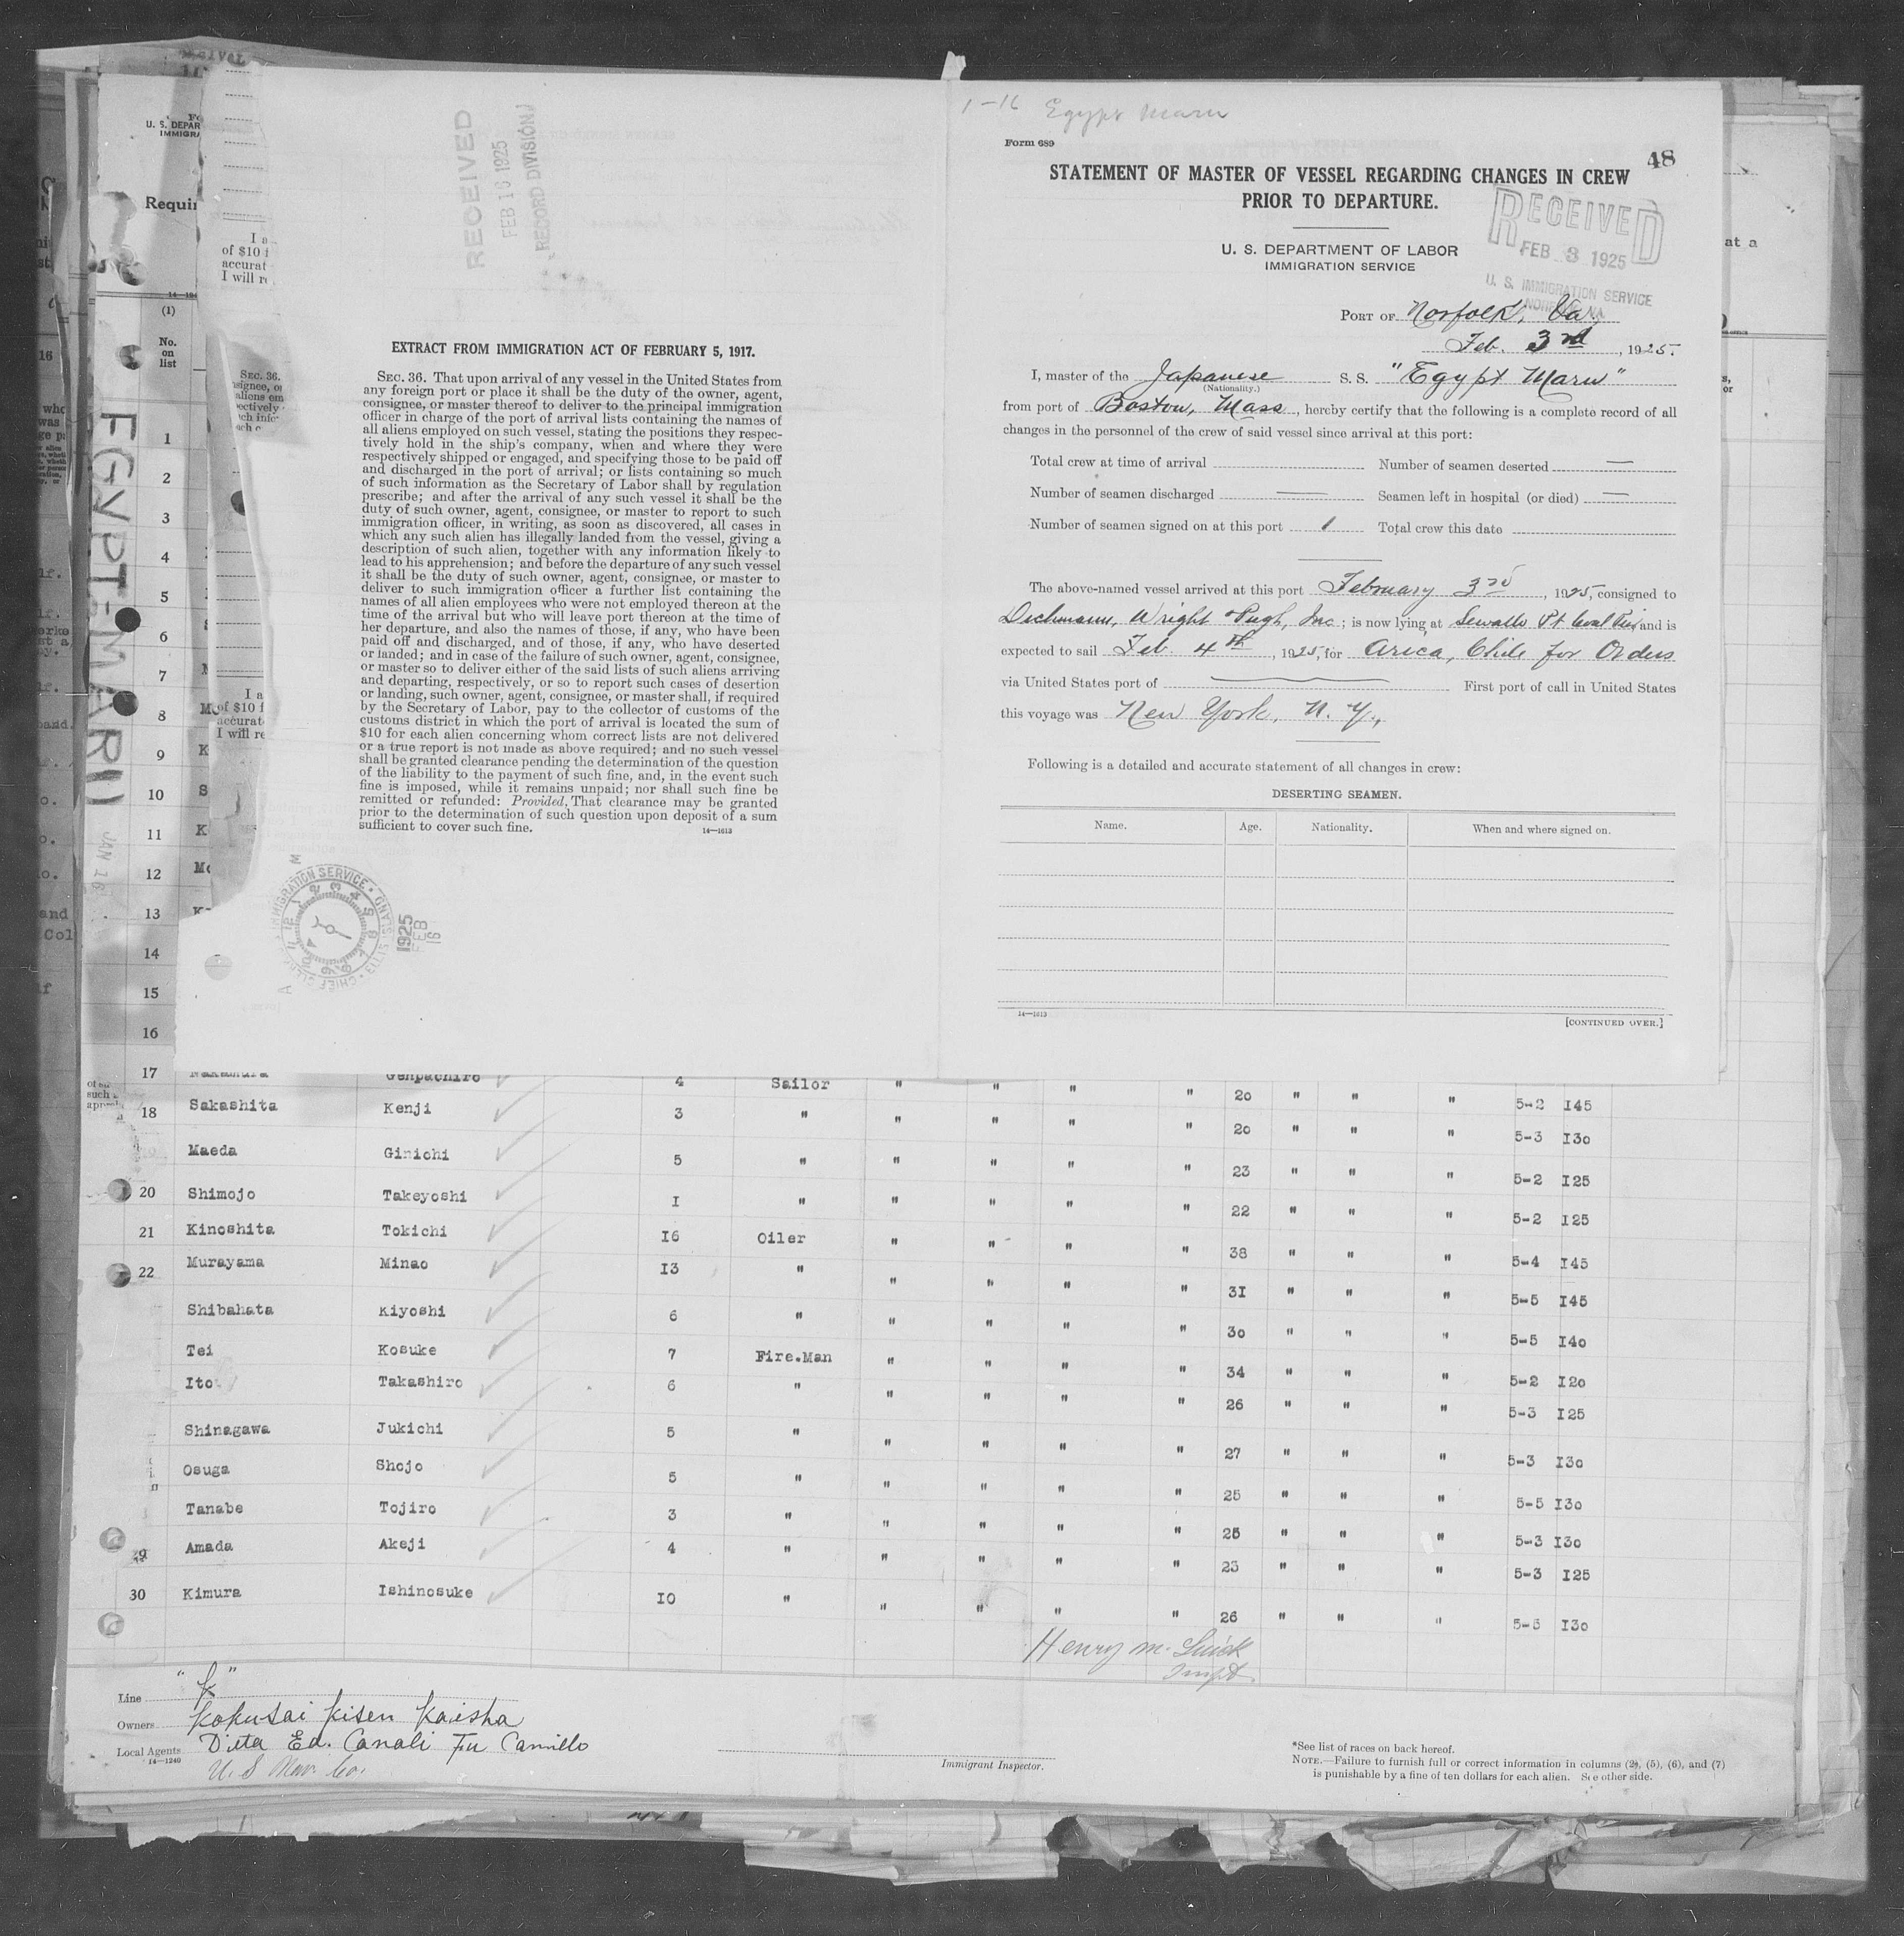 1-16 Egypt Maru
Form 689
48
STATEMENT OF MASTER OF VESSEL REGARDING CHANGES IN CREW
PRIOR TO DEPARTURE.
U. S. DEPARTMENT OF LABOR
IMMIGRATION SERVICE
RECEIVED
FEB 3 1925
U. S. IMMIGRATION SERVICE
PORT OF Norfolk, Va.
Feb. 3rd, 1925.
I, master of the Japanese S. S. "Egypt Maru"
(Nationality.)
from port of Boston, Mass, hereby certify that the following is a complete record of all
changes in the personnel of the crew of said vessel since arrival at this port:
Total crew at time of arrival Number of seamen deserted —
Number of seamen discharged — Seamen left in hospital (or died) —
Number of seamen signed on at this port 1 Total crew this date
The above-named vessel arrived at this port February 3rd, 1925, consigned to
Dichmann, Wright & Pugh, Inc; is now lying at Sewalls Pt Coal Pier and is
expected to sail Feb 4th, 1925, for Arica, Chile for Orders
via United States port of First port of call in United States
this voyage was New York, N. Y.,
Following is a detailed and accurate statement of all changes in crew:
DESERTING SEAMEN.
Name. Age. Nationality. When and where signed on.
14—1613
[CONTINUED OVER.]
RECEIVED
FEB 16 1925
RECORD DIVISION
EXTRACT FROM IMMIGRATION ACT OF FEBRUARY 5, 1917.
SEC. 36. That upon arrival of any vessel in the United States from
any foreign port or place it shall be the duty of the owner, agent,
consignee, or master thereof to deliver to the principal immigration
officer in charge of the port of arrival lists containing the names of
all aliens employed on such vessel, stating the positions they respec-
tively hold in the ship's company, when and where they were
respectively shipped or engaged, and specifying those to be paid off
and discharged in the port of arrival; or lists containing so much
of such information as the Secretary of Labor shall by regulation
prescribe; and after the arrival of any such vessel it shall be the
duty of such owner, agent, consignee, or master to report to such
immigration officer, in writing, as soon as discovered, all cases in
which any such alien has illegally landed from the vessel, giving a
description of such alien, together with any information likely to
lead to his apprehension; and before the departure of any such vessel
it shall be the duty of such owner, agent, consignee, or master to
deliver to such immigration officer a further list containing the
names of all alien employees who were not employed thereon at the
time of the arrival but who will leave port thereon at the time of
her departure, and also the names of those, if any, who have been
paid off and discharged, and of those, if any, who have deserted
or landed; and in case of the failure of such owner, agent, consignee,
or master so to deliver either of the said lists of such aliens arriving
and departing, respectively, or so to report such cases of desertion
or landing, such owner, agent, consignee, or master shall, if required
by the Secretary of Labor, pay to the collector of customs of the
customs district in which the port of arrival is located the sum of
$10 for each alien concerning whom correct lists are not delivered
or a true report is not made as above required; and no such vessel
shall be granted clearance pending the determination of the question
of the liability to the payment of such fine, and, in the event such
fine is imposed, while it remains unpaid; nor shall such fine be
remitted or refunded: Provided, That clearance may be granted
prior to the determination of such question upon deposit of a sum
sufficient to cover such fine.
14—1613
IMMIGRATION SERVICE
CHIEF CLERK ELLIS ISLAND
1925
FEB
16
EGYPT-MARU
JAN 16
(1)
No.
on
list
1
2
3
4
5
6
7
8
9
10
11
12
13
14
15
16
17 Nakamura Genpachiro 4 Sailor " " " " 20 " " " 5-2 I45
18 Sakashita Kenji 3 " " " " " 20 " " " 5-3 I30
Maeda Ginichi 5 " " " " " 23 " " " 5-2 I25
20 Shimojo Takeyoshi I " " " " " 22 " " " 5-2 I25
21 Kinoshita Tokichi I6 Oiler " " " " 38 " " " 5-4 I45
22 Murayama Minao I3 " " " " " 3I " " " 5-5 I45
Shibahata Kiyoshi 6 " " " " " 30 " " " 5-5 I40
Tei Kosuke 7 Fire.Man " " " " 34 " " " 5-2 I20
Ito Takashiro 6 " " " " " 26 " " " 5-3 I25
Shinagawa Jukichi 5 " " " " " 27 " " " 5-3 I30
Osuga Shojo 5 " " " " " 25 " " " 5-5 I30
Tanabe Tojiro 3 " " " " " 25 " " " 5-3 I30
Amada Akeji 4 " " " " " 23 " " " 5-3 I25
30 Kimura Ishinosuke I0 " " " " " 26 " " " 5-5 I30
Line "K"
Owners Kokusai Kisen Kaisha
Local Agents Ditta Ed. Canali Fu Camillo
14—1240
Immigrant Inspector.
*See list of races on back hereof.
NOTE.—Failure to furnish full or correct information in columns (2), (5), (6), and (7)
is punishable by a fine of ten dollars for each alien. See other side.